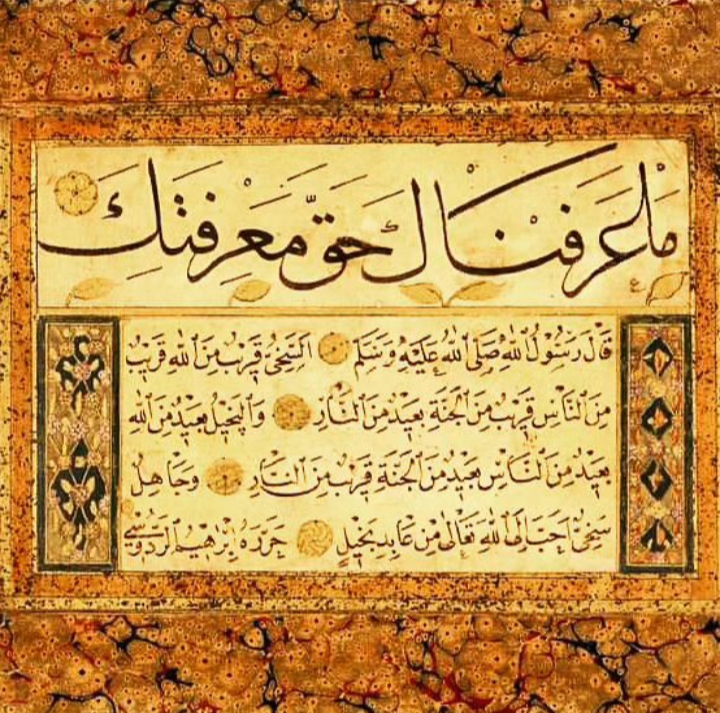 مَا عَرَفْنَاكَ حَقَّ مَعْرِفَتِكَ
قَالَ رَسُولُ اللهِ صَلَّى اللهُ عَلَيْهِ وَسَلَّمَ السَّخِيُّ قَرِيبٌ مِنَ اللهِ قَرِيبٌ
مِنَ النَّاسِ قَرِيبٌ مِنَ الْجَنَّةِ بَعِيدٌ مِنَ النَّارِ وَالْبَخِيلُ بَعِيدٌ مِنَ اللهِ
بَعِيدٌ مِنَ النَّاسِ بَعِيدٌ مِنَ الْجَنَّةِ قَرِيبٌ مِنَ النَّارِ وَجَاهِلٌ
سَخِيٌّ اَحَبُّ اِلَى اللهِ تَعَالَى مِنْ عَابِدٍ بَخِيلٍ حَرَّرَهُ اِبْرَاهِيمُ الرَّدُوسِى